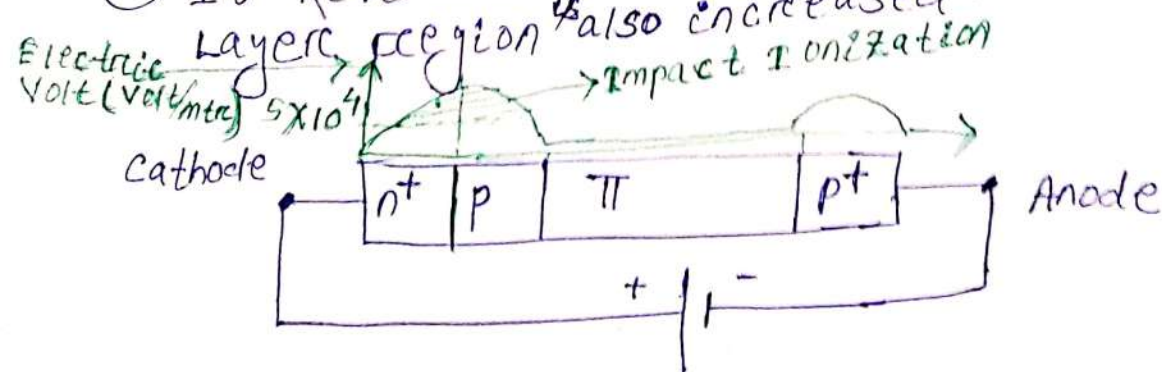 Layer region is also increased
Electric
Volt (Volt/mtr) 5x10⁴
Impact Ionization
Cathode
n⁺ p π p⁺
Anode
+ -